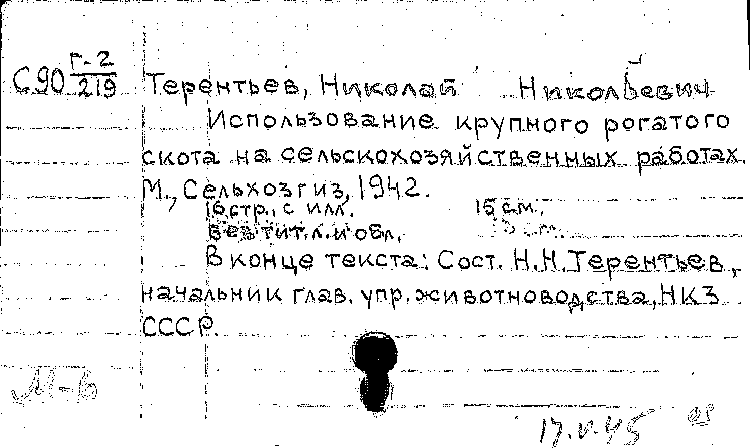 С90 Г-2/219 Терентьев, Николай Никол евич
Использование крупного рогатого
скота на сельскохозяйственных работах.
М., Сельхозгиз, 1942.
16 стр., с илл. 15 см.
Без тит. л. и обл.
В конце текста: Сост. Н.Н. Терентьев,
начальник глав. упр. животноводства, НКЗ
СССР.
М-в
17.V.45